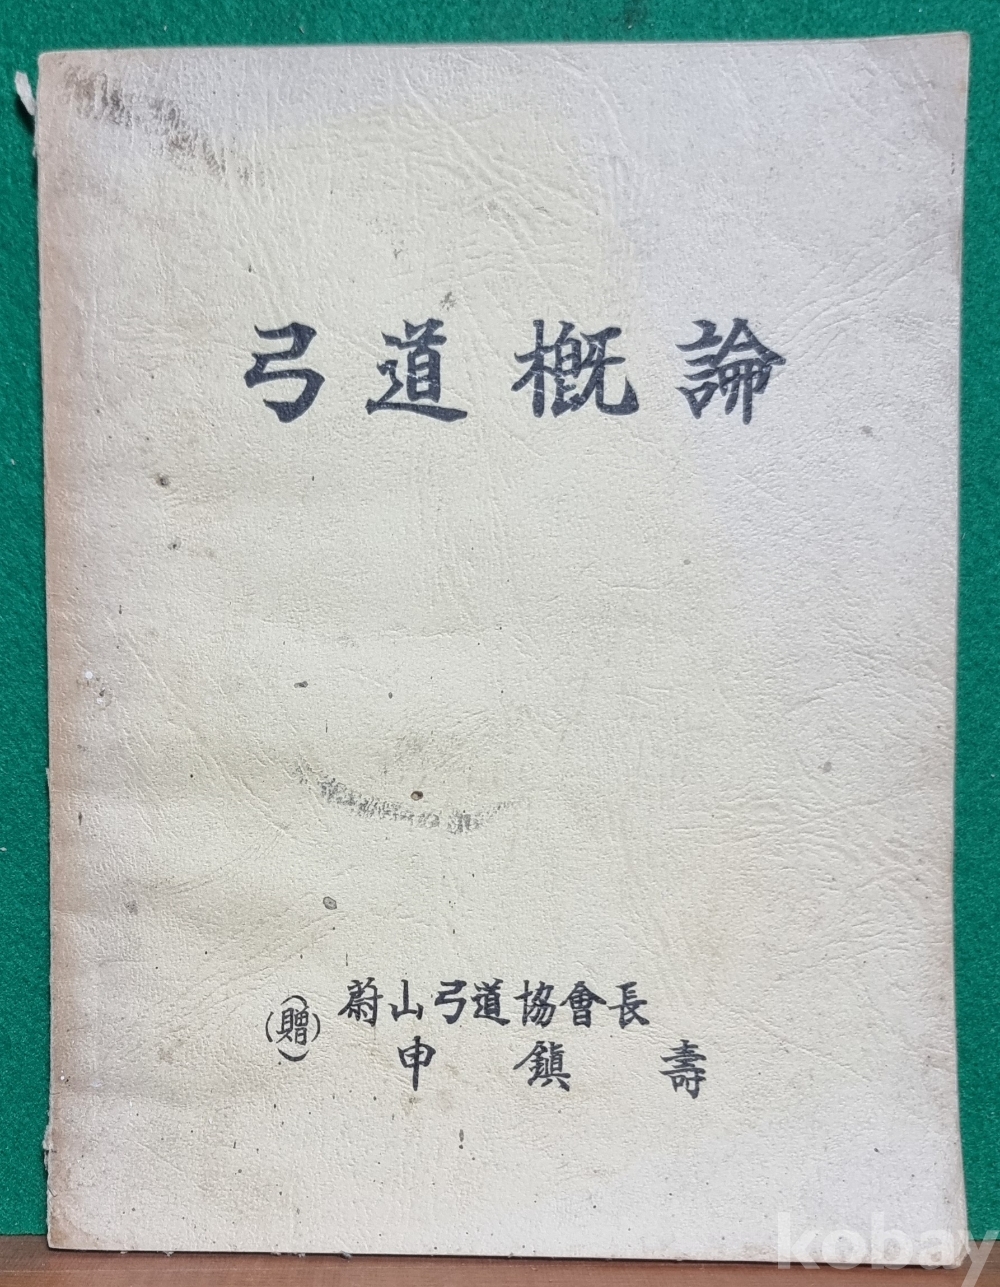 弓道概論
(贈) 蔚山弓道協會長
申鎭壽
kobay